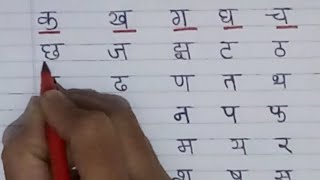 क ख ग घ च
छ ज झ ट ठ
ढ ण त थ
न प फ
म य र
श ष स